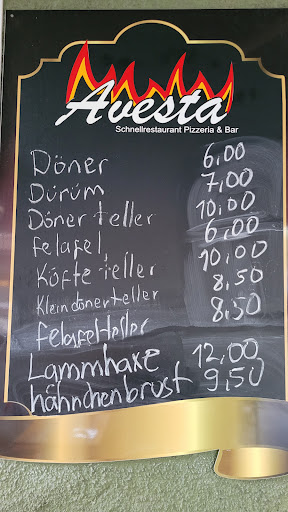 Avesta
Schnellrestaurant Pizzeria & Bar
Döner 6,00
Dürüm 7,00
Döner teller 10,00
felafel 6,00
Köfte teller 10,00
Klein döner teller 8,50
felafel teller 8,50
Lammhaxe 12,00
hähnchenbrust 9,50